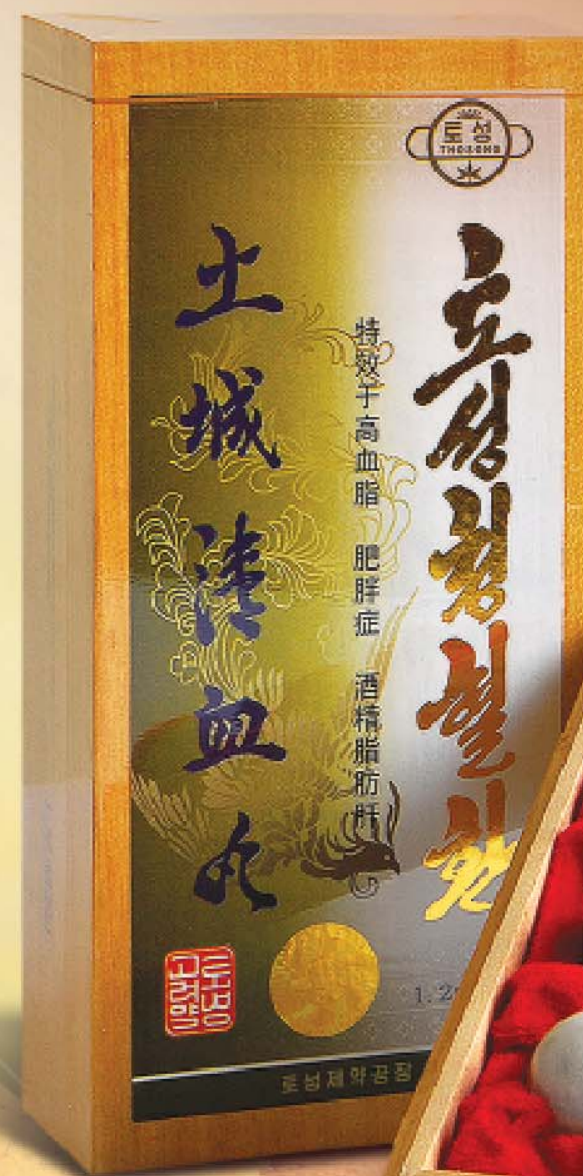 토성
THOSONG
토성청혈환
特效于高血脂 肥胖症 酒精脂肪肝
土城清血丸
토성
고려약
1.2
토성제약공장